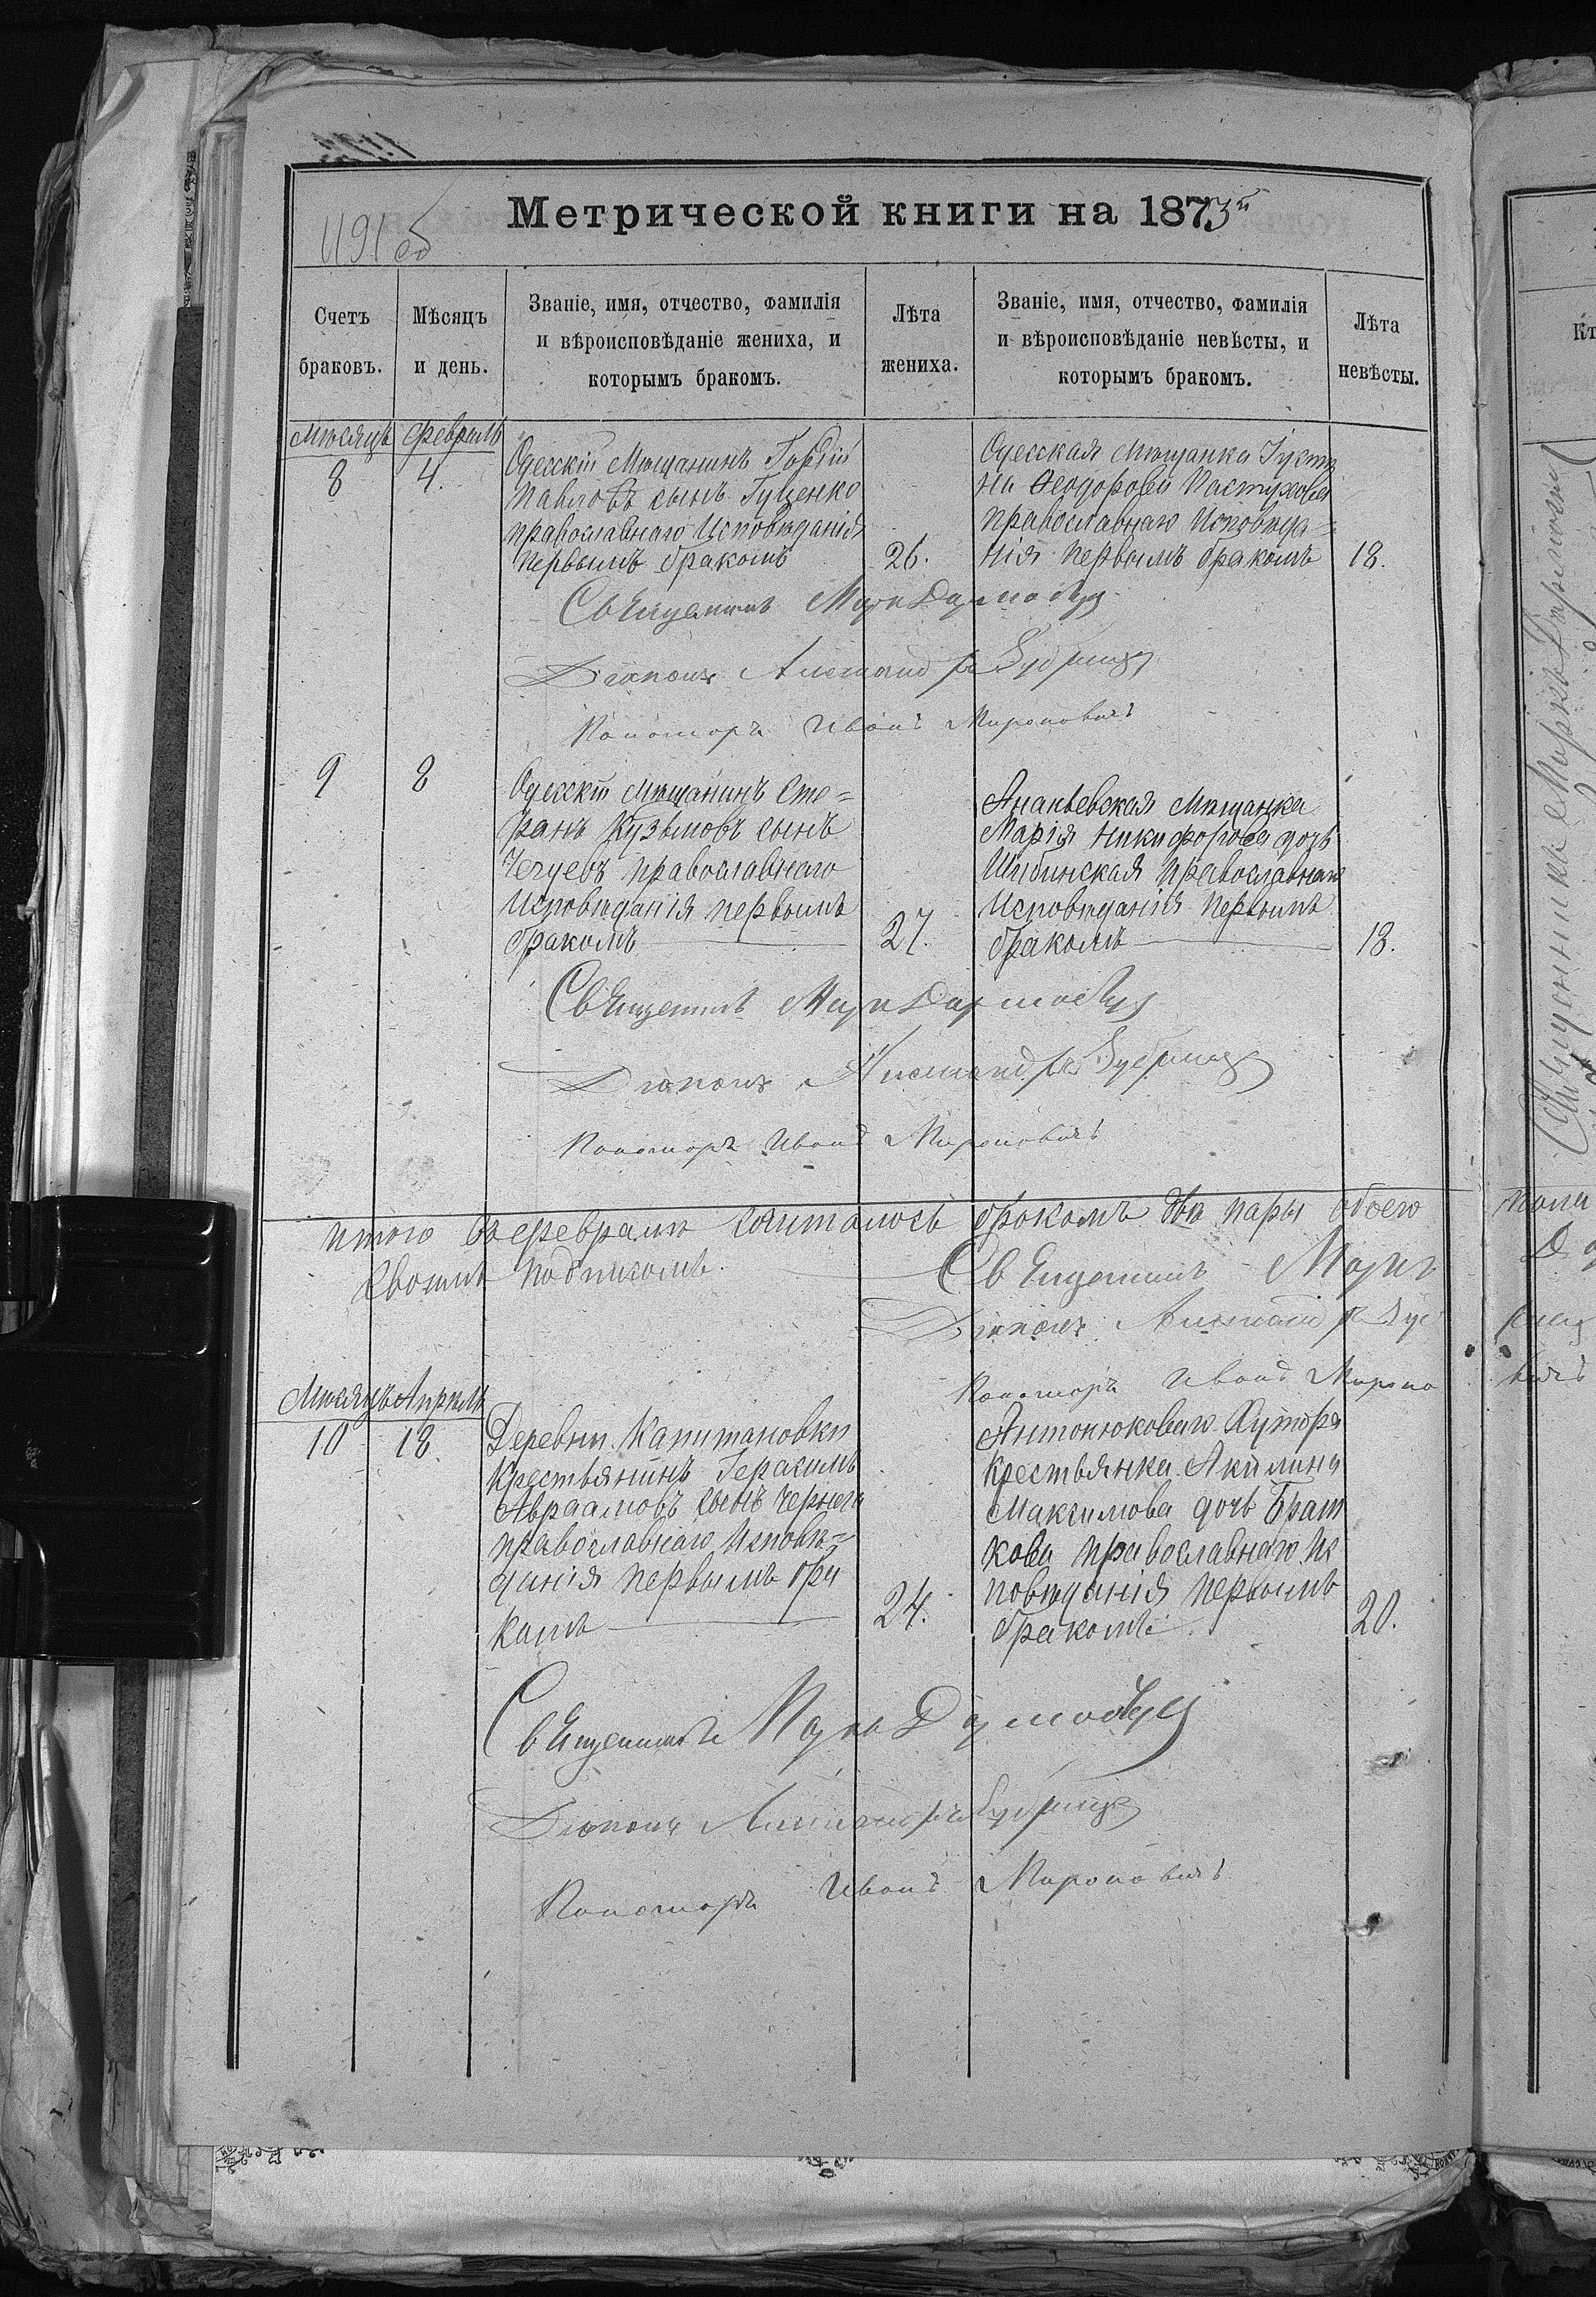 1191 об
Метрической книги на 1873й
Счетъ браковъ.
Мѣсяцъ и день.
Званіе, имя, отчество, фамилія и вѣроисповѣданіе жениха, и которымъ бракомъ.
Лѣта жениха.
Званіе, имя, отчество, фамилія и вѣроисповѣданіе невѣсты, и которымъ бракомъ.
Лѣта невѣсты.
Мѣсяцъ Февраль
8
4.
Одесскій Мѣщанинъ Гордій
Павловъ сынъ Гуценко
православнаго Исповѣданія
первымъ бракомъ
26.
Одесская Мѣщанка Іусти
на Ѳеодорова Пастухова
православнаго Исповѣда=
нія первымъ бракомъ
18.
Священникъ Марк Дармостук
Діаконъ Александръ Зубрицк
Пономарь Иванъ Мироновичъ
9
8
Одесскій Мѣщанинъ Сте=
фанъ Кузьмовъ сынъ
православнаго
Исповѣданія первымъ
бракомъ
27.
Ананьевская Мѣщанка
Марія Никифорова дочь
православнаго
Исповѣданія первымъ
бракомъ
18.
Священникъ Марк
Діаконъ Александръ Зубрицк
Пономарь Иванъ Мироновичъ
итого въ февралѣ сочиталось бракомъ двѣ пары обоего пола
подписомъ.
Священникъ Маркъ
Діаконъ Александръ Зуб
Пономарь Иванъ Мироно
Мѣсяцъ Апрѣль
10
18.
Деревни Капитановки
Крестьянинъ Герасимъ
Авраамовъ сынъ Чернега
православнаго Исповѣ=
данія первымъ бра
комъ
24.
Антонюковаго Хутора
крестьянка Акилина
Максимова дочь Брат
кова православнаго Ис
повѣданія первымъ
бракомъ
20.
Священникъ Марк
Діаконъ Александръ Зубрицк
Пономарь Иванъ Мироновичъ